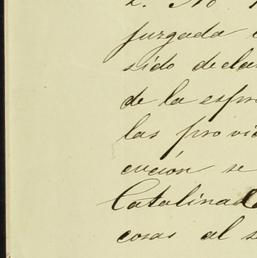 2. No
juzgada
sido decla
de la espro
las provi
cución se
Catalina de
cosas al s